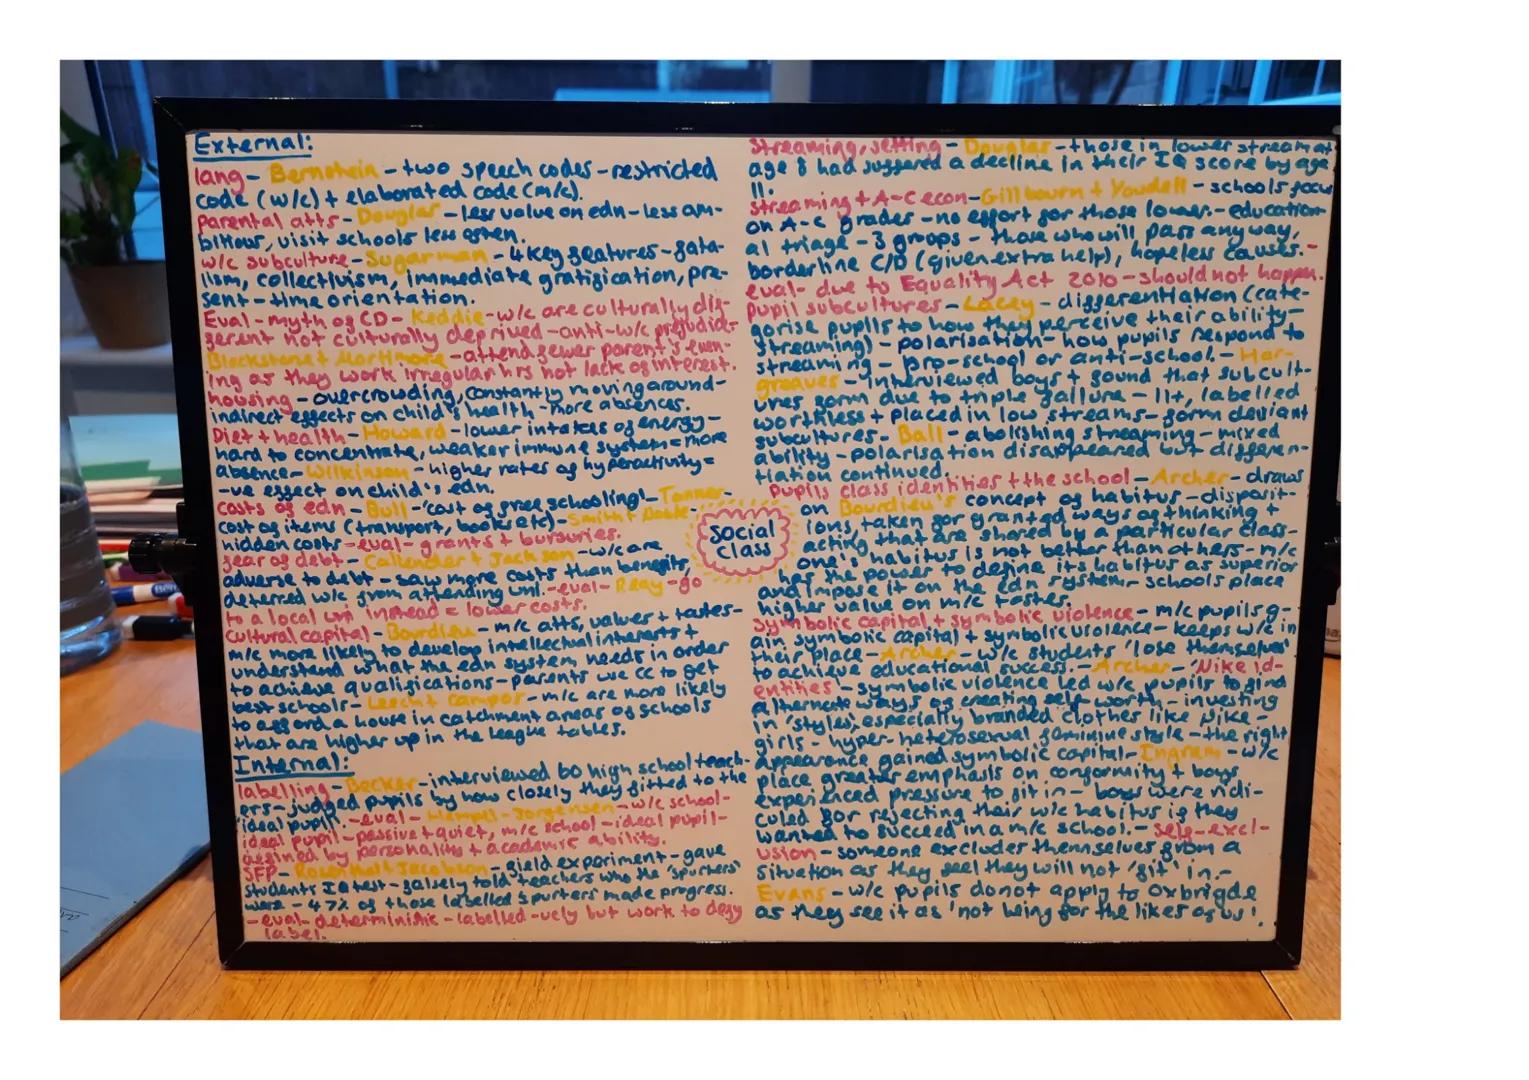 External:
lang - Bernstein - two speech codes - restricted
code (w/c) + elaborated code (m/c).
parental atts - Douglas - less value on edn - less am-
bitious, visit schools less often.
w/c subculture - Sugarman - 4 key features - fata-
lism, collectivism, immediate gratification, pre-
sent-time orientation.
Eval - myth of CD - Keddie - w/c are culturally dif-
ferent not culturally deprived - anti-w/c prejudice-
Blackstone + Mortimore - attend fewer parent's even-
ing as they work irregular hrs not lack of interest.
housing - overcrowding, constantly moving around -
indirect effects on child's health - more absences.
Diet + health - Howard - lower intakes of energy -
hard to concentrate, weaker immune system = more
absence - Wilkinson - higher rates of hyperactivity =
-ve effect on child's edn.
costs of edn - Bull - 'cost of free schooling' - Tanner -
cost of items (transport, books etc) - Smith + Noble -
hidden costs - eval - grants + bursuries.
fear of debt - Callender + Jackson - w/c are
adverse to debt - saw more costs than benefits,
deterred w/c from attending uni. - eval - Reay - go
to a local uni instead = lower costs.
cultural capital - Bourdieu - m/c atts, values + tastes -
m/c more likely to develop intellectual interests +
understand what the edn system needs in order
to achieve qualifications - parents use CC to get
best schools - Leech + Campos - m/c are more likely
to afford a house in catchment areas of schools
that are higher up in the league tables.
Internal:
labelling - Becker - interviewed 60 high school teach-
ers - judged pupils by how closely they fitted to the
ideal pupil'. - eval - Hempel-Jorgensen - w/c school -
ideal pupil - passive + quiet, m/c school - ideal pupil -
defined by personality + academic ability.
SFP - Rosenthal + Jacobson - field experiment - gave
students IQ test - falsely told teachers who the 'spurters'
were - 47% of those labelled spurters made progress.
- eval - deterministic - labelled -vely but work to defy
label.
Social
class
Streaming, setting - Douglas - those in lower stream at
age 8 had suffered a decline in their IQ score by age
11.
streaming + A-C econ - Gillbourn + Youdell - schools focus
on A-C grades - no effort for those lower. - education-
al triage - 3 groups - those who will pass anyway,
borderline C/D (given extra help), hopeless causes. -
eval - due to Equality Act 2010 - should not happen.
Pupil subcultures - Lacey - differentiation (cate-
gorise pupils to how they perceive their ability -
streaming) - polarisation - how pupils respond to
streaming - pro-school or anti-school. - Har-
greaves - interviewed boys + found that subcult-
ures form due to triple failure - 11+, labelled
worthless + placed in low streams - form deviant
subcultures - Ball - abolishing streaming - mixed
ability - polarisation disappeared but differen-
tiation continued.
Pupils class identities + the school - Archer - draws
on Bourdieu's concept of habitus - disposit-
ions, taken for granted ways of thinking +
acting that are shared by a particular class -
one's habitus is not better than others - m/c
has the power to define its habitus as superior
and impose it on the edn system - schools place
higher value on m/c tastes.
Symbolic capital + symbolic violence - m/c pupils g-
ain symbolic capital + symbolic violence - keeps w/c in
their place - Archer - w/c students 'lose themselves'
to achieve educational success. - Archer - 'Nike id-
entities' - symbolic violence led w/c pupils to find
alternate ways of creating self-worth - investing
in 'styles', especially branded clothes like Nike -
girls - hyper-heterosexual feminine style - the right
appearance gained symbolic capital - Ingram - w/c
place greater emphasis on conformity + boys
experienced pressure to fit in - boys were ridi-
culed for rejecting their w/c habitus if they
wanted to succeed in a m/c school. - self-excl-
usion - someone excludes themselves from a
situation as they feel they will not 'fit' in. -
Evans - w/c pupils do not apply to Oxbrigde
as they see it as 'not being for the likes of us'.